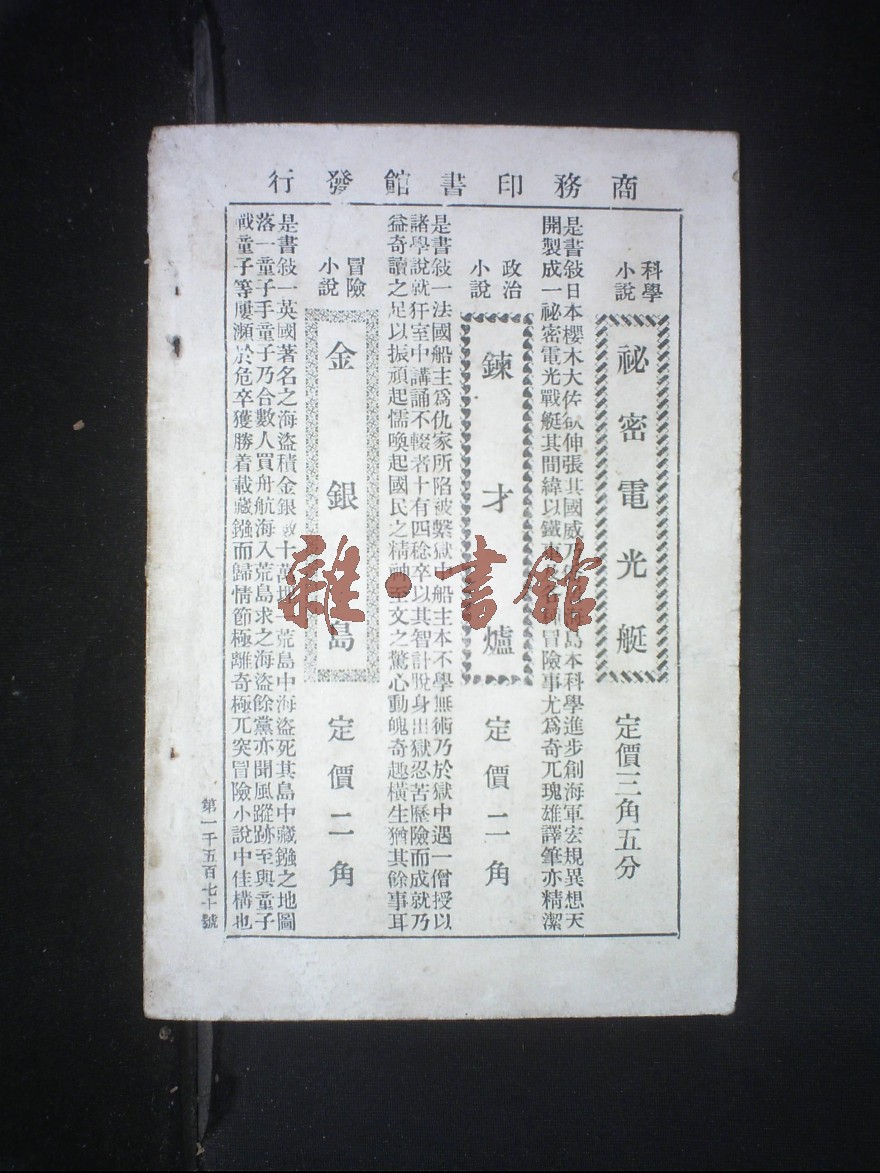 商務印書館發行
科學小說
祕密電光艇
定價三角五分
是書敍日本櫻木大佐欲伸張其國威乃 島本科學進步創海軍宏規異想天
開製成一祕密電光戰艇其間緯以鐵 冒險事尤爲奇兀瑰雄譯筆亦精潔
政治小說
鍊才爐
定價二角
是書敍一法國船主爲仇家所陷被繫獄中船主本不學無術乃於獄中遇一僧授以
諸學說就犴室中講誦不輟者十有四稔卒以其智計脫身出獄忍苦歷險而成就乃
益奇讀之足以振頑起懦喚起國民之精神至文之驚心動魄奇趣橫生猶其餘事耳
冒險小說
金銀島
定價二角
是書敍一英國著名之海盜積金銀數十萬埋 荒島中海盜死其島中藏鏹之地圖
落一童子手童子乃合數人買舟航海入荒島求之海盜餘黨亦聞風蹤跡至與童子
戰童子等屢瀕於危卒獲勝着載藏鏹而歸情節極離奇極兀突冒險小說中佳構也
第一千五百七十號
雜·書館